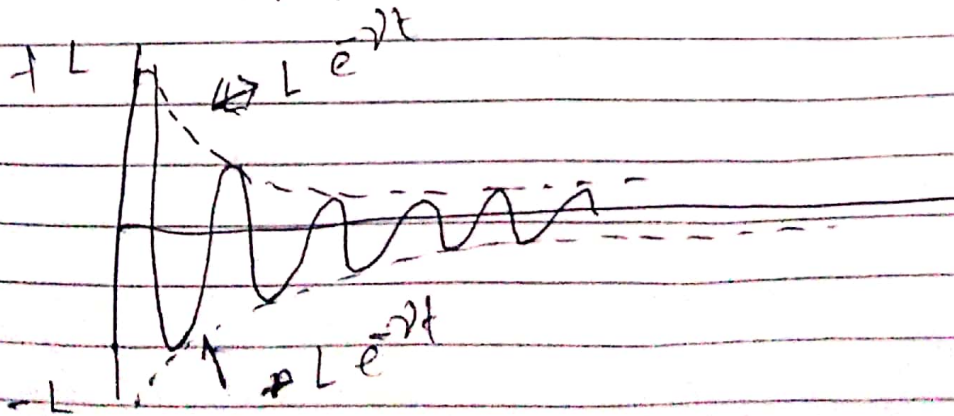 +L
L e^-νt
L e^-νt
-L